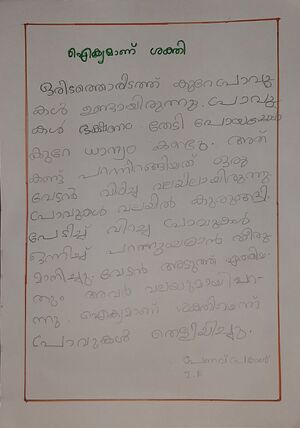 ഐക്യമാണ് ശക്തി
ഒരിടത്തൊരിടത്ത് കുറേ പ്രാവു
കൾ ഉണ്ടായിരുന്നു. പ്രാവു
കൾ ഭക്ഷണം തേടി പോയപ്പോൾ
കുറേ ധാന്യം കണ്ടു. അത്
കണ്ട് പറന്നിറങ്ങിയത് ഒരു
വേടൻ വിരിച്ച വലയിലായിരുന്നു
പ്രാവുകൾ വലയിൽ കുരുങ്ങി.
പേടിച്ച് വിറച്ച പ്രാവുകൾ
ഒന്നിച്ച് പറന്നുയരാൻ തീരു
മാനിച്ചു. വേടൻ അടുത്ത് എത്തിയ
തും അവർ വലയുമായി പറ
ന്നു. ഐക്യമാണ് ശക്തിയെന്ന്
പ്രാവുകൾ തെളിയിച്ചു.